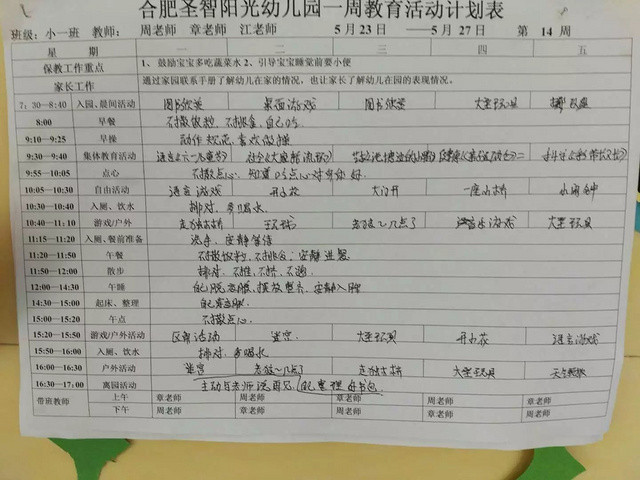 合肥圣智阳光幼儿园一周教育活动计划表
班级：小一班 教师： 周老师 章老师 江老师 5月23日 ——5月27日 第 14 周
星 期 一 二 三 四 五
保教工作重点 1、鼓励宝宝多吃蔬菜水 2、引导宝宝睡觉前要小便
家长工作 通过家园联系手册了解幼儿在家的情况，也让家长了解幼儿在园的表现情况。
7：30—8:40 入园、晨间活动 图书欣赏 桌面游戏 图书欣赏 大型玩具
8:00 早餐 不撒饭粒，不挑食，自己吃
9:10—9:25 早操 动作规范，喜欢做操
9:30—9:40 集体教育活动 语言《六一儿童节》
9:55—10:05 点心 不撒点心，
10:05—10:30 自由活动 语言游戏 开小花 大门开 一座小桥 小闹钟
10:30—10:40 入厕、饮水 排队，多喝水
10:40—11:10 游戏/户外 走独木桥 玩球 老狼几点了 游戏 大型玩具
11:15—11:20 入厕、餐前准备 洗手，安静等待
11:20—11:50 午餐 不撒饭粒，不挑食，安静进餐
11:50—12:00 散步 排队，不推，不挤，不跑
12:00—14:30 午睡 自己脱衣服，摆放整齐，安静入睡
14:30—15:00 起床、整理 自己穿衣服
15:00—15:20 午点 不撒点心
15:20—15:50 游戏/户外活动 区角活动 迷宫 大型玩具 开小花 语言游戏
15:50—16:00 入厕、饮水 排队，多喝水
16:00—16:30 户外活动 迷宫 老狼几点了 走独木桥 大型玩具
16:30—17:00 离园活动 主动与老师说再见，自己整理好书包
带班教师 上午 章老师 周老师 章老师 周老师 章老师
下午 周老师 章老师 周老师 章老师 周老师